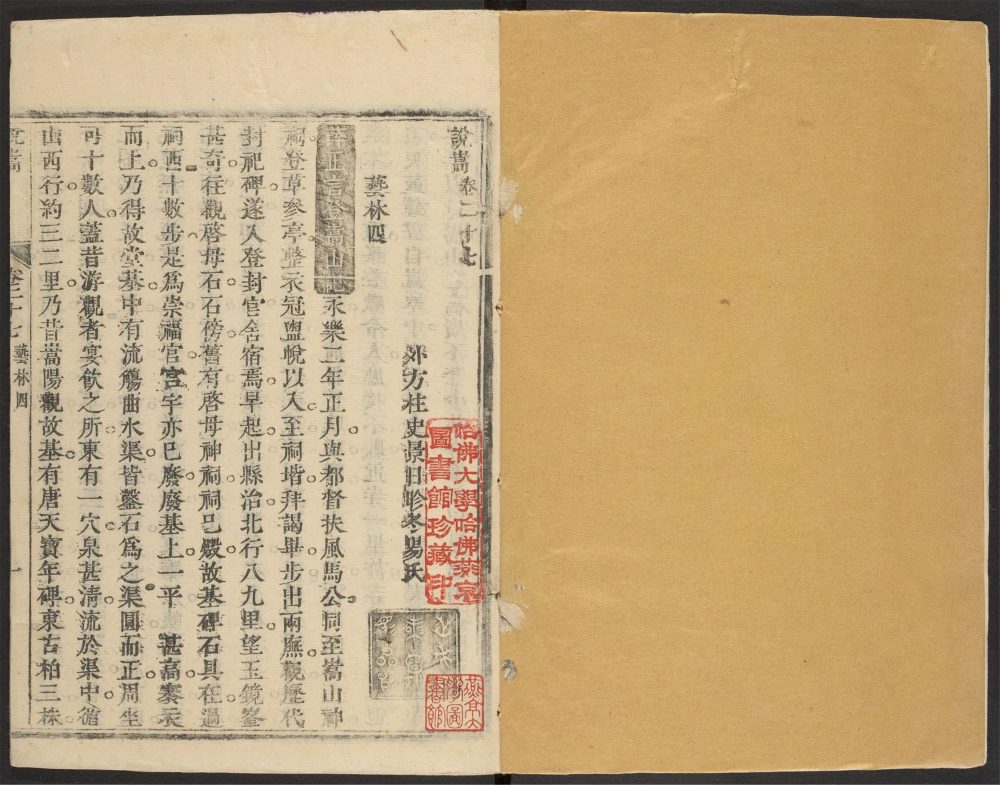 說嵩卷二十七
藝林四
外方柱史景日昣冬陽氏
永樂二年正月與都督扶風馬公同至嵩山神
祠登草參亭整衣冠盥帨以入至祠堦拜謁畢步出兩廡觀歷代
封祀碑遂入登封官舍宿焉早起出縣治北行八九里望玉鏡峯
甚奇往觀啓母石石傍舊有啓母神祠祠已毀故基碑石具在過
祠西十數步是爲崇福宮宮宇亦已廢廢基上一平甚高褰衣
而上乃得故堂基中有流觴曲水渠皆鑿石爲之渠圓而正周坐
可十數人蓋昔游觀者宴飮之所東有一穴泉甚清流於渠中循
山西行約三二里乃昔嵩陽觀故基有唐天寶年碑東古柏三株
說嵩
卷二十七
藝林四
一
哈佛大學哈佛燕京
圖書館珍藏印